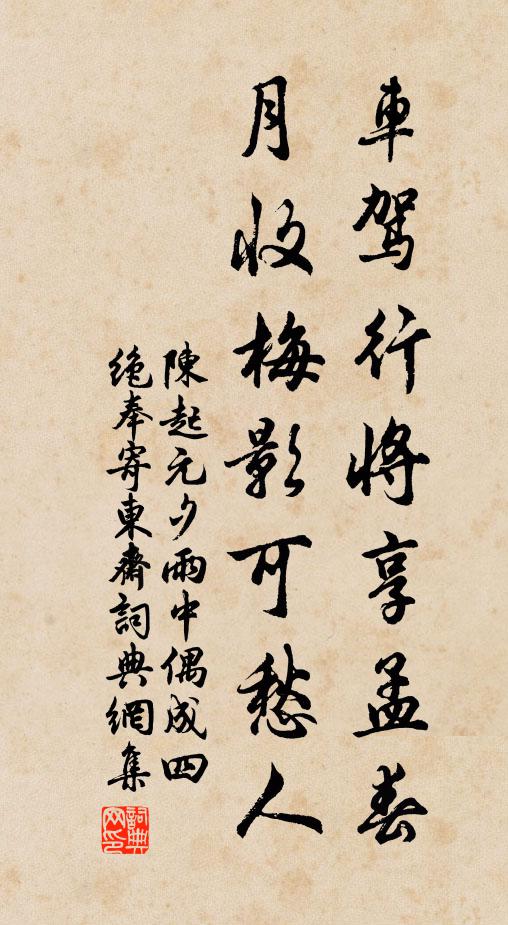 車駕行將享孟春
月收梅影可愁人
陳起元夕雨中偶成四
絶奉寄東齋詞典網集
詞典
网印